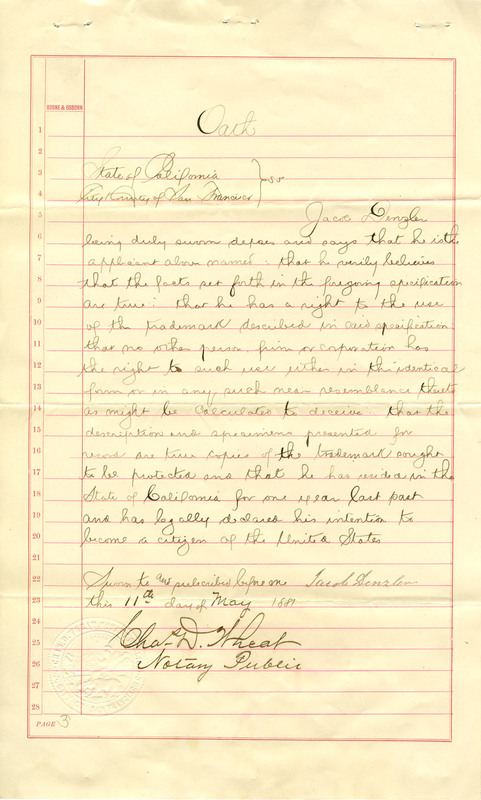 BOONE & OSBORN
Oath
1
2
3 State of California
4 City & County of San Francisco } ss
5 Jacob Denzler
6 being duly sworn deposes and says that he is the
7 applicant above named: that he verily believes
8 that the facts set forth in the foregoing specification
9 are true: that he has a right to the use
10 of the trademark described in said specification:
11 that no other person, firm or corporation has
12 the right to such use either in the identical
13 form or in any such near resemblance thereto
14 as might be calculated to deceive: that the
15 description and specimens presented for
16 record are true copies of the trademark sought
17 to be protected and that he has resided in the
18 State of California for one year last past
19 and has legally declared his intention to
20 become a citizen of the United States
21
22 Sworn to and subscribed before me Jacob Denzler
23 this 11th day of May 1881
24
25 Chas. D. Wheat
26 Notary Public
27
28
PAGE 3